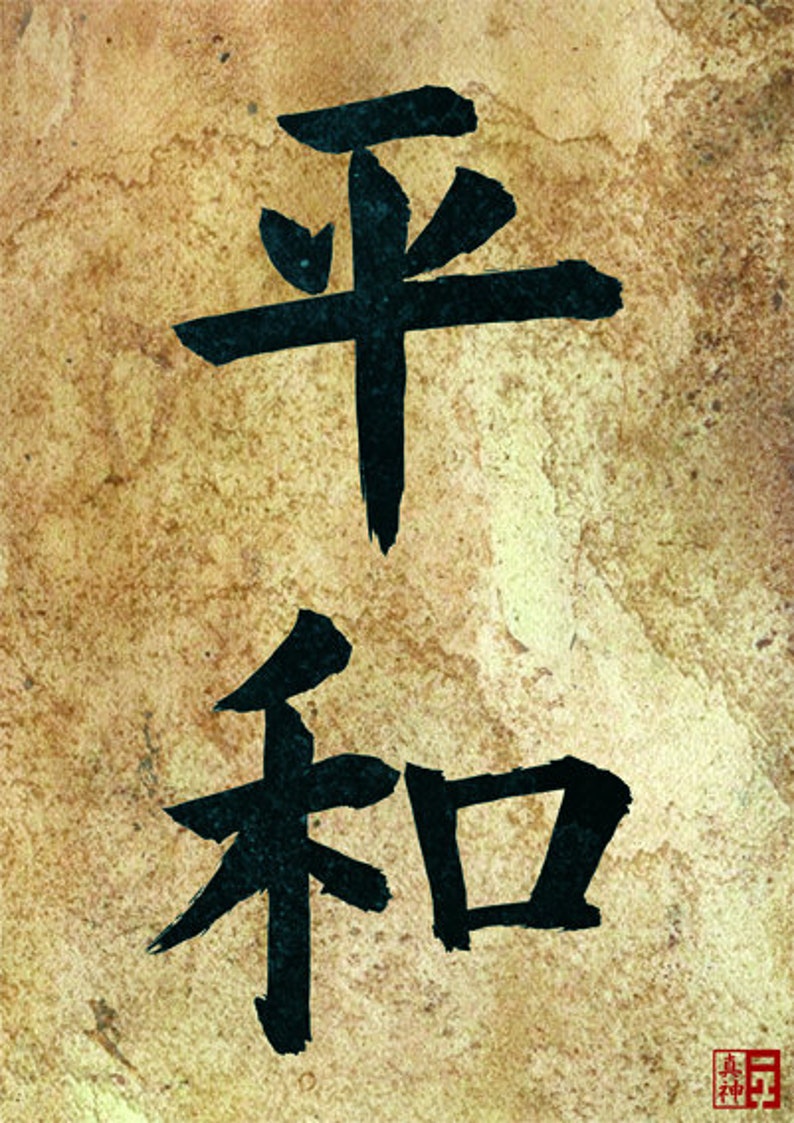 平
和
真神